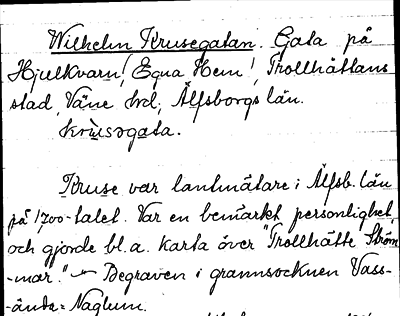 Wilhelm Krusegatan. Gata på
Hjulkvarn, Egna Hem!, Trollhättans
stad, Väne hd, Älfsborgs län.
krùsəgata.
Kruse var lantmätare i Älfsb. län
på 1700-talet. Var en bemärkt personlighet,
och gjorde bl.a. karta över "Trollhätte Ström
-mar." – Begraven i grannsocknen Vass-
-ända-Naglum.